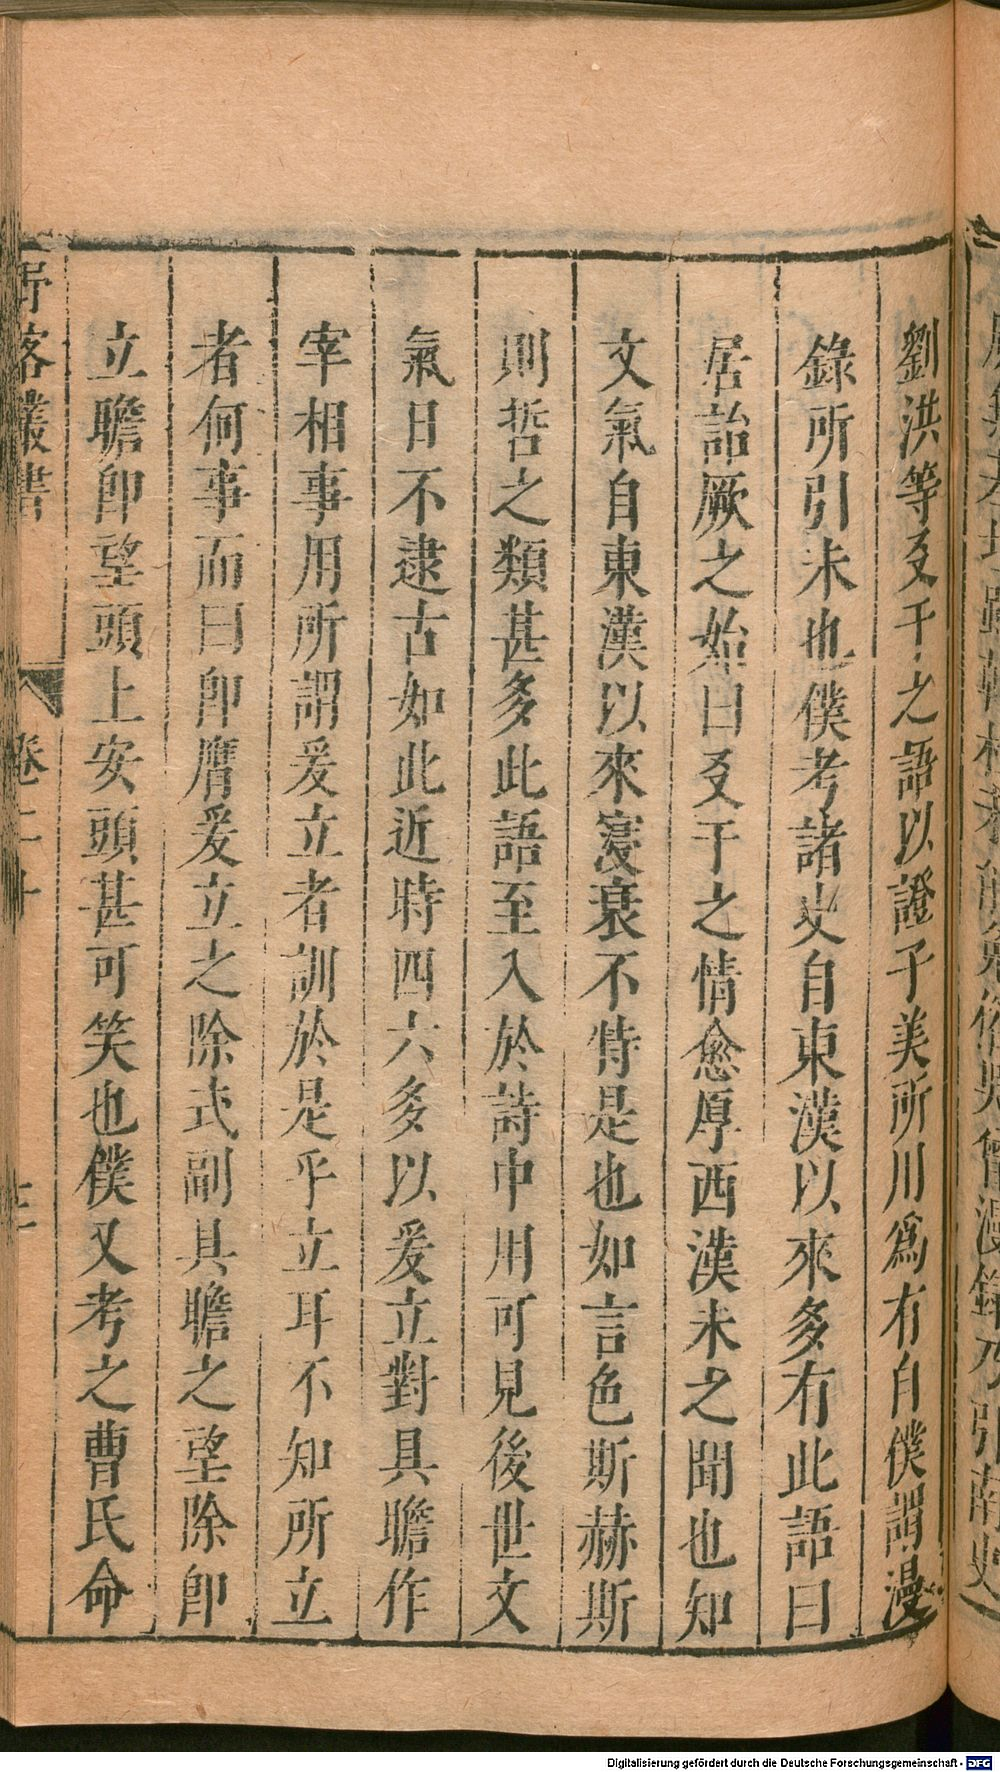 劉洪等友于之語以證子美所用為有自僕謂漫
錄所引未也僕考諸史自東漢以來多有此語曰
居詒厥之始曰友于之情愈厚西漢未之聞也知
文氣自東漢以來寖衰不特是也如言色斯赫斯
則哲之類甚多此語至入於詩中用可見後世文
氣日不逮古如此近時四六多以爰立對具瞻作
宰相事用所謂爰立者訓於是乎立耳不知所立
者何事而曰卽膺爰立之除式副具瞻之望除卽
立瞻卽望頭上安頭甚可笑也僕又考之曹氏命
野客叢書 卷二十
Digitalisierung gefördert durch die Deutsche Forschungsgemeinschaft - DFG